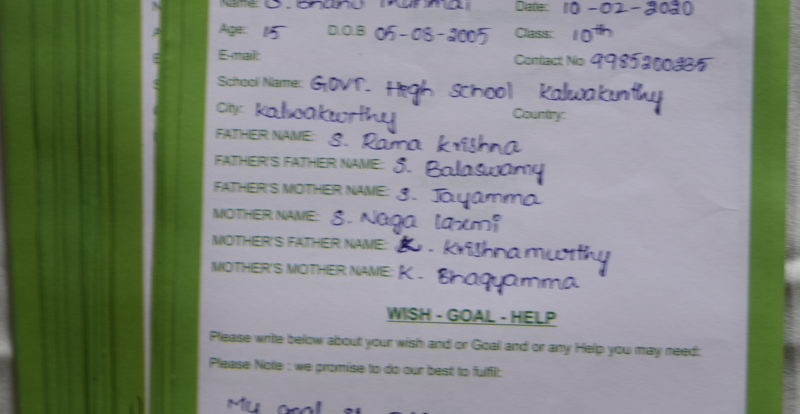 Name: S. Bhanu Date: 10-02-2020
Age: 15 D.O.B 05-08-2005 Class: 10th
E-mail: Contact No 9985200335
School Name: GOVT. High school kalwakurthy
City: kalwakurthy Country:
FATHER NAME: S. Rama krishna
FATHER'S FATHER NAME: S. Balaswamy
FATHER'S MOTHER NAME: S. Jayamma
MOTHER NAME: S. Naga laxmi
MOTHER'S FATHER NAME: K. krishnamurthy
MOTHER'S MOTHER NAME: K. Bhagyamma
WISH - GOAL - HELP
Please write below about your wish and or Goal and or any Help you may need:
Please Note : we promise to do our best to fulfil:
My goal